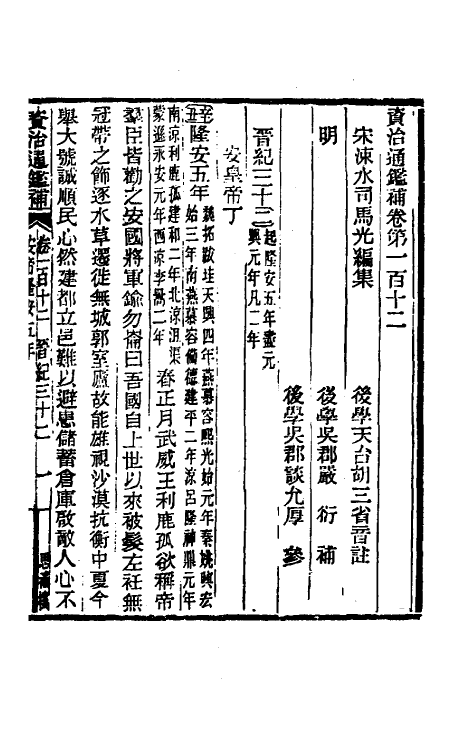 資治通鑑補卷第一百十二
宋涑水司馬光編集　後學天台胡三省音註
明　後學吳郡嚴　衍　補
後學吳郡談允厚　參
晉紀三十二 起隆安五年盡元興元年凡二年
安皇帝丁
辛丑隆安五年 魏拓跋珪天興四年燕慕容熙光始元年秦姚興宏始三年南燕慕容備德建平二年涼呂隆神鼎元年
南涼利鹿孤建和二年北涼沮渠蒙遜永安元年西涼李暠二年 春正月武威王利鹿孤欲稱帝
羣臣皆勸之安國將軍鍮勿崙曰吾國自上世以來被髮左衽無
冠帶之飾逐水草遷徙無城郭室廬故能雄視沙漠抗衡中夏今
舉大號誠順民心然建都立邑難以避患儲蓄倉庫啟敵人心不
資治通鑑補 卷一百十二 晉紀三十二 安帝隆安五年 一 思補樓